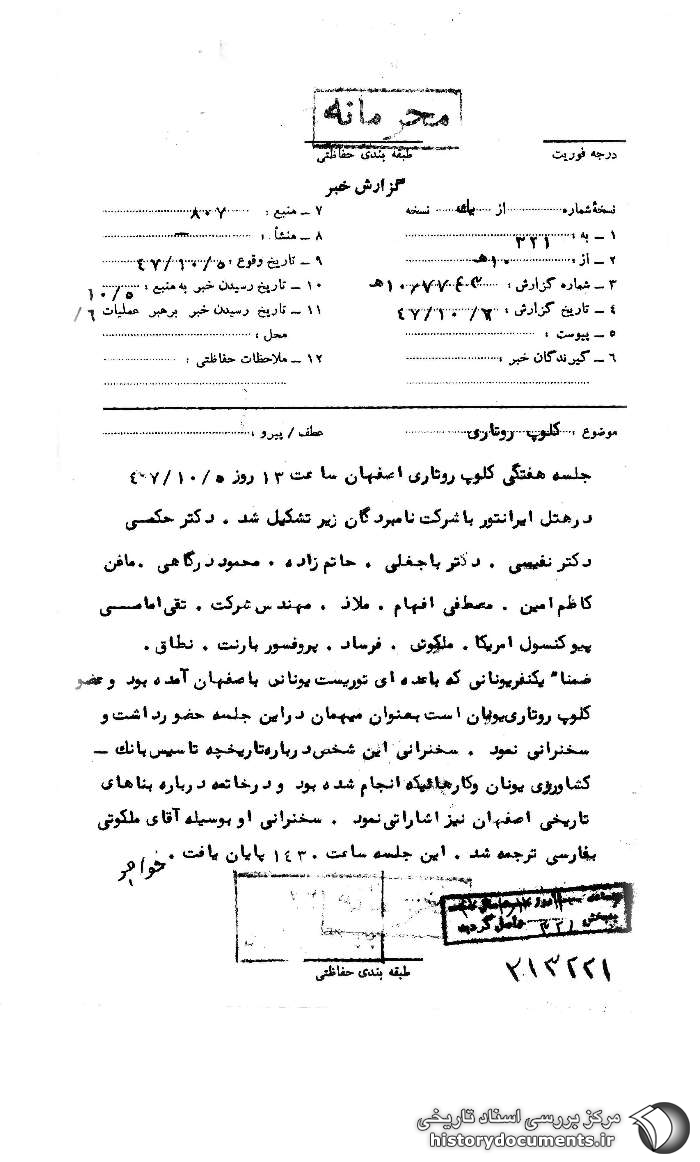 محرمانه
درجه فوریت
طبقه بندی حفاظتی
گزارش خبر
نسخهٔ شماره از یک نسخه
۱ ــ به : ۳۲۱
۲ ــ از : ۱۰ ه‍
۳ ــ شماره گزارش :
۴ ــ تاریخ گزارش : ۴۷/۱۰/۶
۵ ــ پیوست :
۶ ــ گیرندگان خبر :
۷ ــ منبع : ۸۰۷
۸ ــ منشأ : ــ
۹ ــ تاریخ وقوع : ۴۷/۱۰/۵
۱۰ ــ تاریخ رسیدن خبر به منبع : ۱۰/۵
۱۱ ــ تاریخ رسیدن خبر برهبر عملیات ۶/
محل :
۱۲ ــ ملاحظات حفاظتی :
موضوع : کلوپ روتاری
عطف / پیرو :
جلسه هفتگی کلوپ روتاری اصفهان ساعت ۱۳ روز ۴۷/۱۰/۵
در هتل ایرانتور با شرکت نامبردگان زیر تشکیل شد . دکتر حکمی
دکتر نفیسی . دکتر باجغلی . حاتم زاده . محمود درگاهی .
کاظم امین . مصطفی افهام . ملاذ . مهندس شرکت . تقی امامی
پیو کنسول امریکا . ملکوتی . فرساد . پروفسور بارنت . نطاق .
ضمنا" یکنفر یونانی که با عده ای توریست یونانی باصفهان آمده بود و عضو
کلوپ روتاری یونان است بعنوان میهمان در این جلسه حضور داشت و
سخنرانی نمود . سخنرانی این شخص درباره تاریخچه تاسیس بانک ــ
کشاورزی یونان و کارهائیکه انجام شده بود و در خاتمه درباره بناهای
تاریخی اصفهان نیز اشاراتی نمود . سخنرانی او بوسیله آقای ملکوتی
بفارسی ترجمه شد . این جلسه ساعت ۱۴۳۰ پایان یافت .
بخش ۳۲۱ واصل گردید
طبقه بندی حفاظتی
۲۱۳۲۲۱
مرکز بررسی اسناد تاریخی
historydocuments.ir